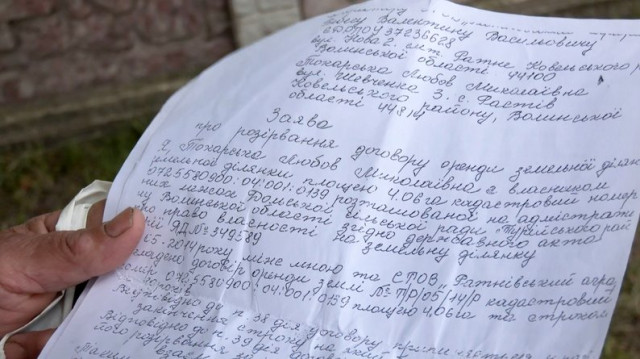 Бебесу Валентину Васильовичу
ЄДРПОУ 37236628
вул. Нова 2, смт Ратне Ковельського р
Волинської області 44100
Пожарська Любов Миколаївна
вул. Шевченка 3. с.
Ковельського району, Волинської
області
Заява
про розірвання договору оренди земельної ділянк
Я, Пожарська Любов Миколаївна є власником
земельної ділянки площею 4,06 га кадастровий номер
0725580900:04:001:0159 розташованої на адміністрати
них межах сільської ради Турійського рай
ну Волинської області згідно державного акта
про право власності на земельну ділянку
ЯД № 349389
05.2014 року між мною та СТОВ „Ратнівський аграр
договір оренди землі № ТР/05/14/Р кадастровий
0725580900:04:001:0159 площею 4,06 га та строком
років
Відповідно до п 38 дія договору припиняється
закінчення строку на який
Відповідно до п. 39 дія договору
його розірвання